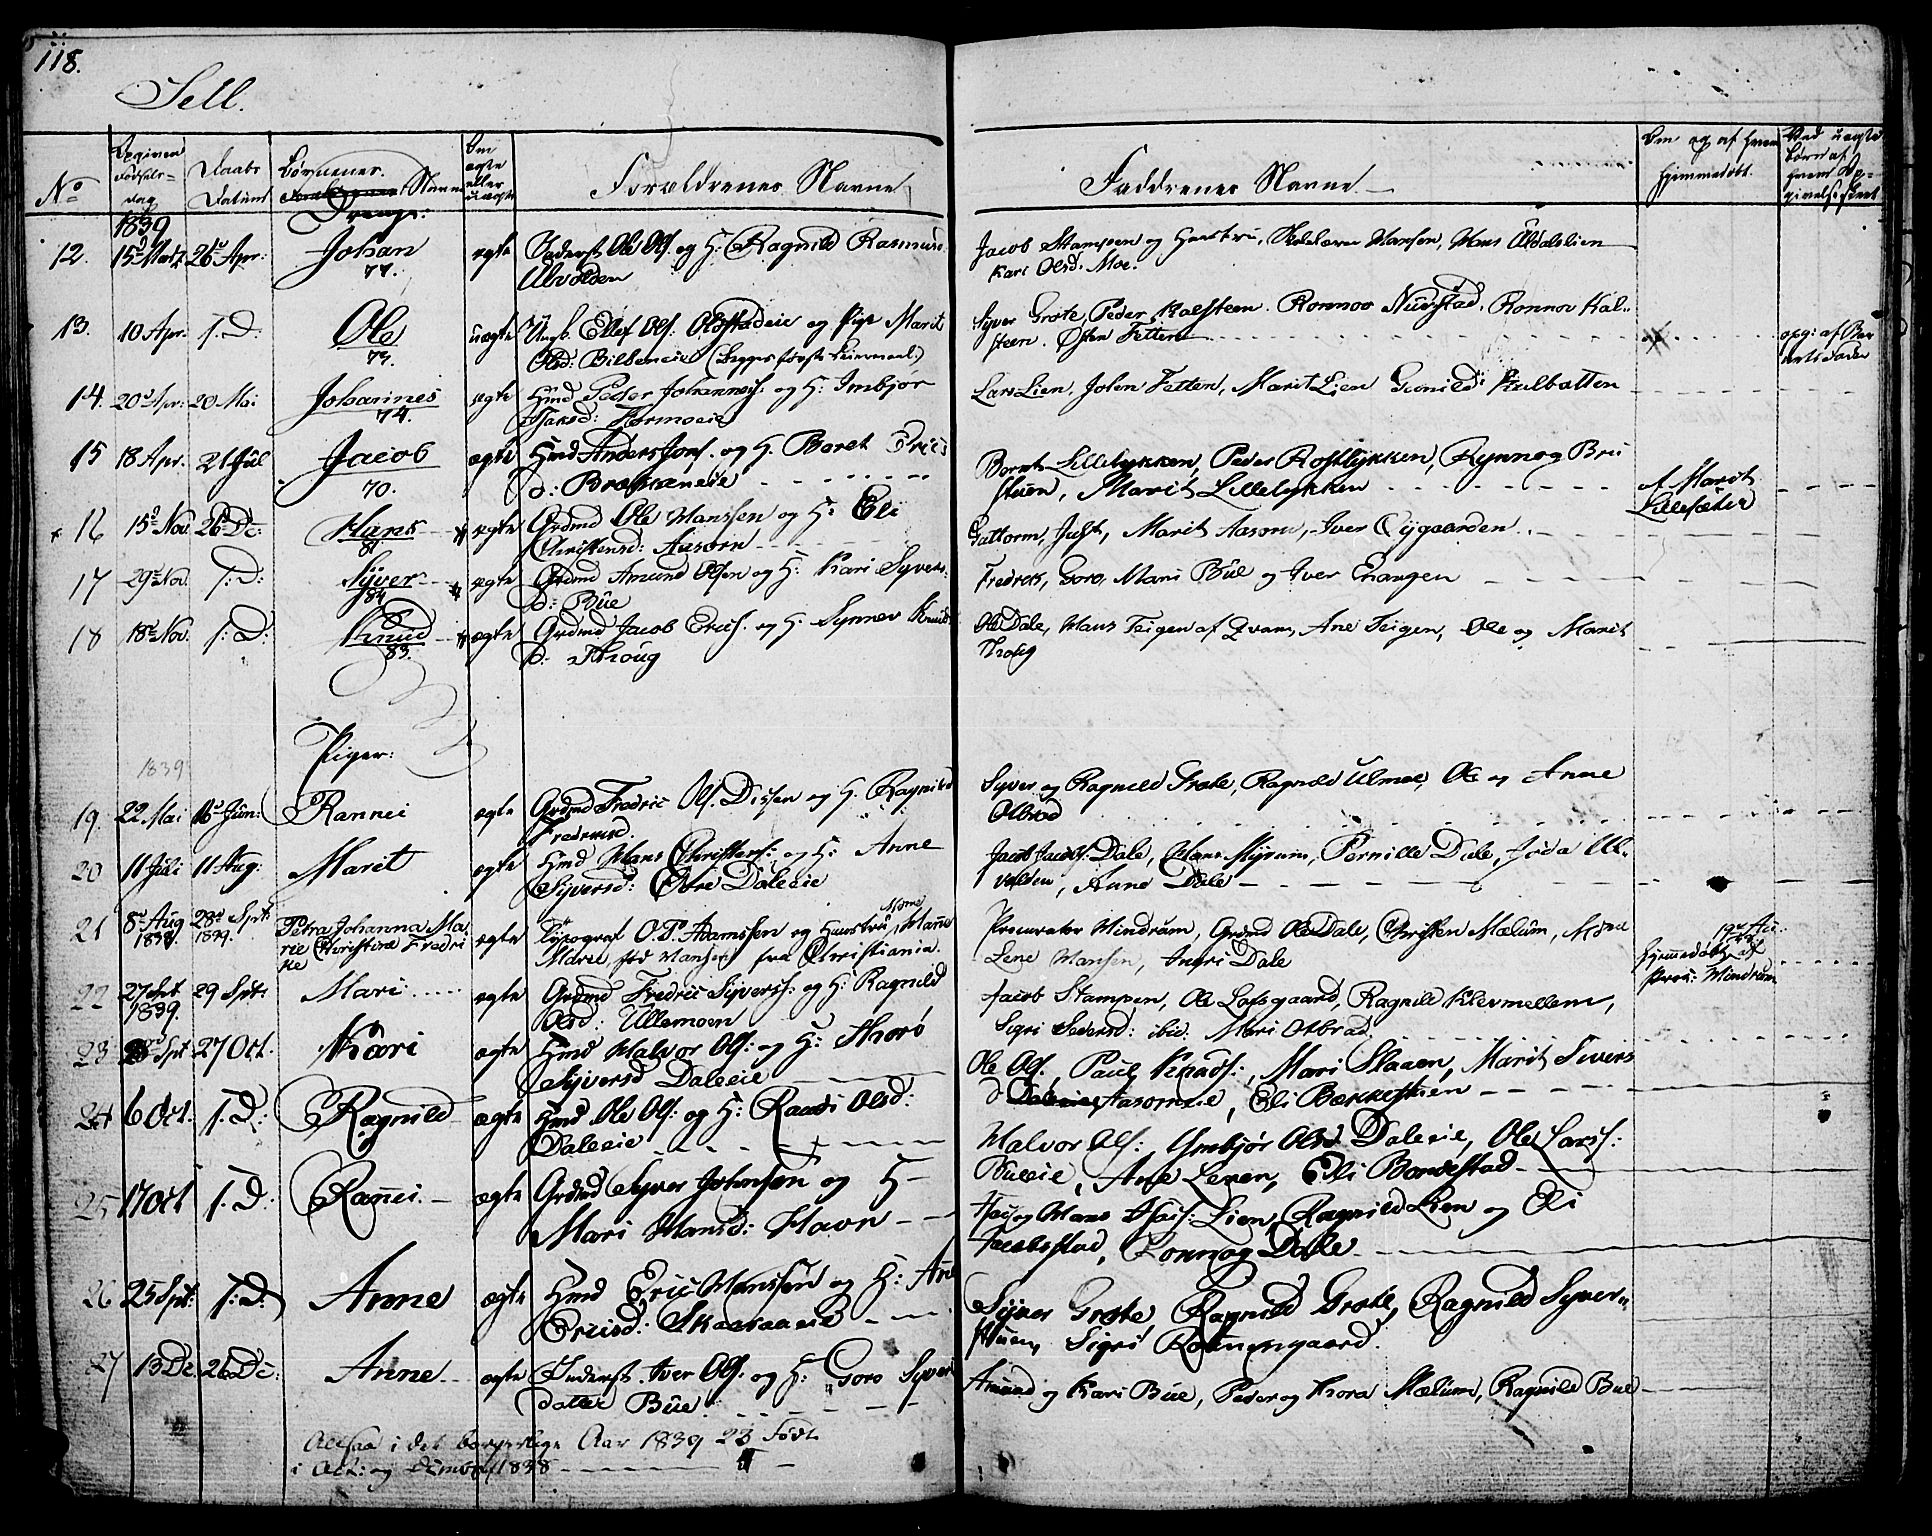 118.
Sell.
No
Opgiven Fødsels-dag
Daabs Datum
Børnenes Navne
Om ægte eller uægte
Forældrenes Navne
Faddrenes Navne
Om og af hvem hjemmedøbt.
Ved uægte Børn af hvem Opgivelse skeet
Drenge:
1839
12. 15de Marts 26de Apr: Johan 77. ægte Inderst Ole Ols: og H: Ragnild Rasmusd.
Ulvolden
Jacob Stampen og Hustru, Hansen, Hans Uldalslien
Kari Olsd: Moe.
13. 10 Apr. S: D: Ole 73. uægte Ungk. Ellef Ols: Olsstadeie og Pige Marit
Olsd: Bilbeneie (Begges første Leiermaal.)
Syver Grote, Peder Kalsteen. Ronnov Nuerstad, Ronnov Kal-
steen. Østen Fetten
opg: af Bar
nefaderen
14. 20de Apr: 20 Mai Johannes 74. ægte Hmd Peder Johanness: og H: Imbjør
Isaksd: Formoeie
Lars Lien, John Fetten, Marit Lien Gunild Kulbatten
15 18 Apr. 21 Jul Jacob 70. ægte Hmd Anders Jons. og H. Boret Erics
d: Brækkeneie
Bernt Lillelykken, Peder Rostlykken, Rynnog Bru
stuen, Marit Lillelykken
af Marit
Lillesæter
16 15de Nov. 26 De: Hans 81 ægte Grdmd Ole Hanssen og H: Eli
Christensd: Aasorn
Guttorm, Juft, Marit Aasorn, Iver Nygaarden
17 29de Nov. S: D: Syver 84 ægte Grdmd Amund Olsen og H: Kari Syvers
d: Bùe
Fredrek, Goro, Mari Bùe og Iver Enangen
18 18de Nov. S: D: Knud 83. ægte Grdmd Jacob Erics: og H: Synnev Knuds
d: Thoùg
Ole Dale, Hans Teigen af Qvam, Ane Teigen, Ole og Marit
Thoùg
Piger:
1839
19. 22 Mai 16de Jùn: Rannei ægte Grdmd Fredric Ols. Dissen og H. Ragnild
Frederiksd.
Syver og Ragnild Grote, Ragnild Ulmoe, Ole og Anne
Olstad
20 11 Juli 11 Aug: Marit ægte Hmd Hans Christens: og H: Anne
Syversd: Øvre Daleeie
Jacob Jacobs: Dale, Hans Myrum, Pernille Dale, Ul-
volden, Anne Dale
21 8de Aug 1838. 28de Spt: 1839. Petra Johanna Ma-
rie Christine Fredri
ke ægte Typograf O. P. Adamssen og Hùustrù Hanne
Marie fød Hansen fra Christiania.
Procurator Mindrum, Grdmd Ole Dale, Christen Mælum,
Lene Hansen, Ingri Dale
hjemmedøbt af
Proc: Mindrum
22 27 Spt 1839. 29 Spt: Mari ægte Grdmd Fredric Syvers: og H: Ragnild
Olsd: Ullemoen
Jacob Stampen, Ole Lofsgaard, Ragnild Klevmellem,
Sigri ibid: Mari Olstad
23 Spt 27 Oct. Kari ægte Hmd Halvor Ols: og H: Thorø
Syversd Daleeie
Ole Ols., Paul Knuds:, Mari Slaaen, Marit Sivers
d Aasorneie, Eli Bækkestuen
24 6 Oct. S: D: Ragnild ægte Hmd Ole Ols: og H: Randi Olsd:
Daleeie
Halvor Ols:, Ymbjør Olsd Daleeie, Ole Larss:
Bueeie, Ane Lenen, Eli Bondestad
25 17 Oct S: D: Rannei. ægte Grdmd Syver Johnson og H
Mari Hansd: Havn
og Hans Isais: Lien, Ragnild Lien og Eli
Jacobsstad, Ronnog Dale
26 25 Spt: S: D: Anne ægte Hmd Eric Hanssen og H: Ane
Ericsd: Skaaraaeie
Syver Grote, Ragnild Grote, Ragnild Syver-
stuen, Sigri Romungaard.
27 13 De 26 De: Anne ægte Inderst. Iver Ols. og H: Goro Syvers
datter Bùe.
Amund og Kari Bùe, Peder og Thora Mælum, Ragnild Bue
Altsaa i det borgerlige Aar 1839 23 Født
i Oct: og Dcember 1838 4